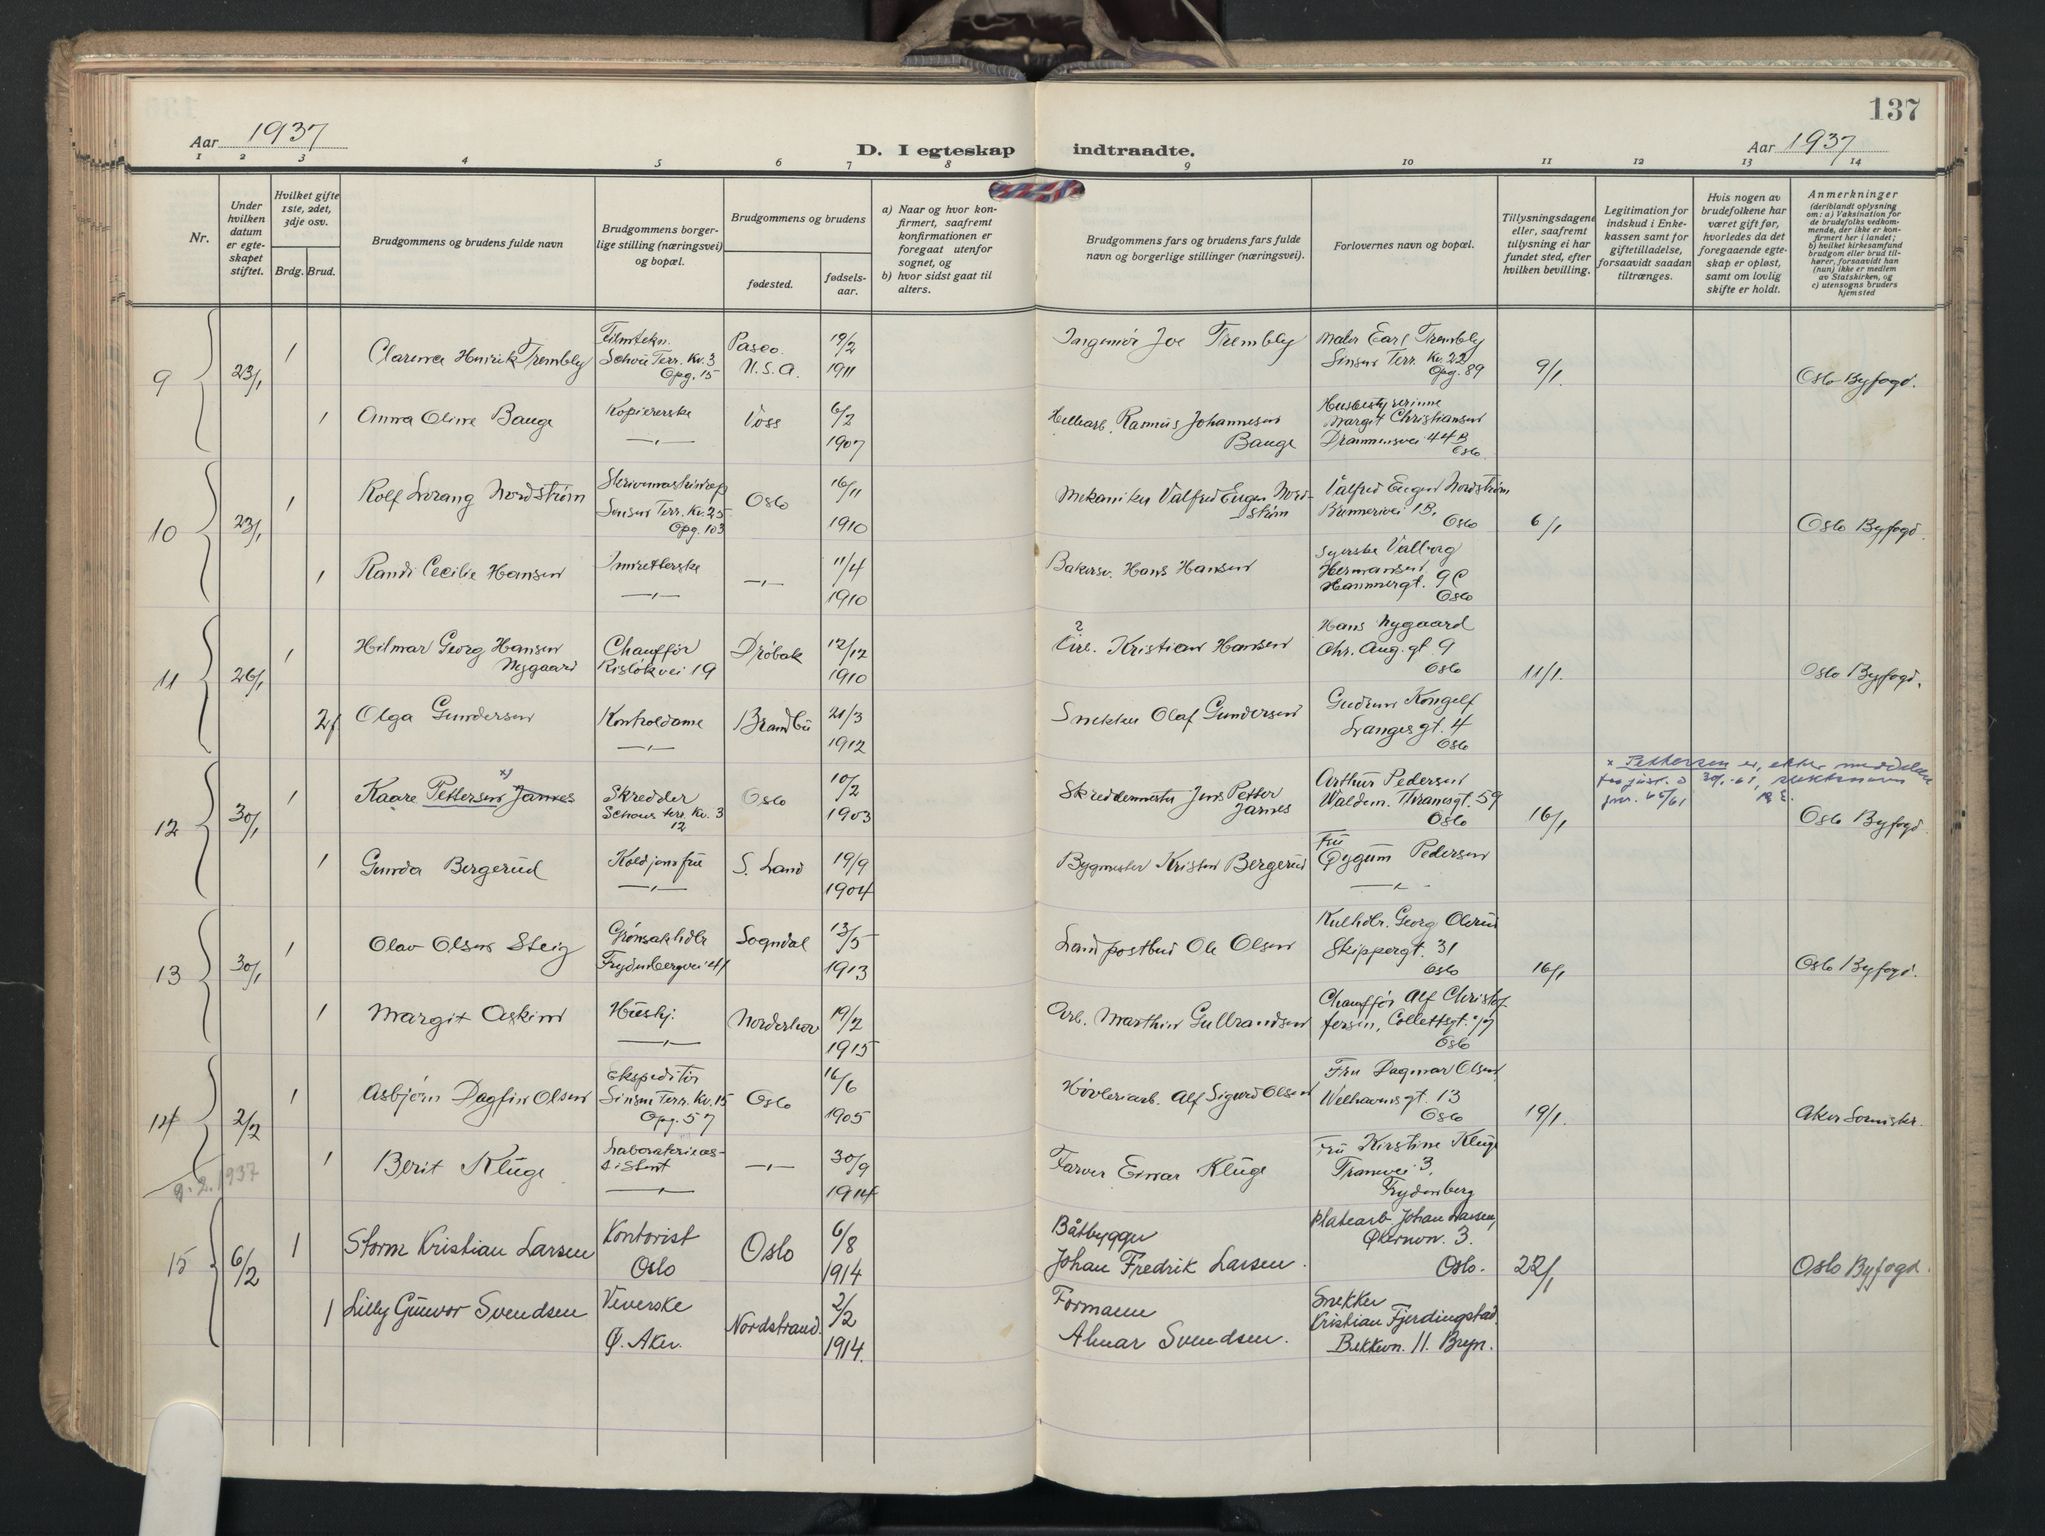 137
Aar 1937
D. I egteskap indtraadte.
Aar 1937
1 2 3 4 5 6 7 8 9 10 11 12 13 14
Nr.
Under hvilken datum er egte- skapet stiftet.
Hvilket gifte 1ste, 2det, 3dje osv.
Brdg. Brud.
Brudgommens og brudens fulde navn
Brudgommens borger- lige stilling (næringsvei) og bopæl.
Brudgommens og brudens
fødested.
fødsels- aar.
a) Naar og hvor kon- firmert, saafremt konfirmationen er foregaat utenfor sognet, og
b) hvor sidst gaat til alters.
Brudgommens fars og brudens fars fulde navn og borgerlige stillinger (næringsvei).
Forlovernes navn og bopæl.
Tillysningsdagene eller, saafremt tillysning ei har fundet sted, efter hvilken bevilling.
Legitimation for indskud i Enke- kassen samt for giftetilladelse, forsaavidt saadan tiltrænges.
Hvis nogen av brudefolkene har været gift før, hvorledes da det foregaaende egte- skap er opløst, samt om lovlig skifte er holdt.
Anmerkninger (deriblandt oplysning om: a) Vaksination for de brudefolks vedkom- mende, der ikke er kon- firmert her i landet; b) hvilket kirkesamfund brudgom eller brud til- hører, forsaavidt han (hun) ikke er medlem av Statskirken, og c) utensogns bruders hjemsted
9 23/1 1 Clarence Henrik Trembly Filmtekn. Schous Terr. Kv. 3 Opg. 15 Pasco. U.S.A. 19/2 1911 Ingeniør Joe Trembly Maler Earl Trembly Sinsen Terr. Kv. 22 Opg. 89 9/1. Oslo Byfogd.
1 Anna Oline Bauge Kopiererske —"— Voss 6/2 1907 Rasmus Johannesen Bauge Husbestyrerinne Margit Christiansen Drammensvei 44 B Oslo.
10 23/1 1 Rolf Lorang Nordstrøm Skrivemaskinrep Sinsen Terr. Kv. 25 Opg. 103 Oslo 16/11 1910 Mekaniker Valfred Eugen Nord- strøm Valfred Eugen Nordstrøm 1B, Oslo 6/1 Oslo Byfogd.
1 Randi Cecilie Hansen —"— —"— 11/4 1910 Bakersv. Hans Hansen Syerske Valborg Hermansen Hammergt. 9C Oslo
11 26/1 1 Hilmar Georg Hansen Nygaard Chauffør Risløkvei 19 Drøbak 12/12 1910 ? Kristian Hansen Hans Nygaard Chr. Aug. gt. 9 Oslo 11/1. Oslo Byfogd.
2f Olga Gundersen Kontroldame —"— Brandbu 21/3 1912 Snekker Olaf Gundersen Gudrun Kongelf Langesgt. 4 Oslo
12 30/1 1 Kaare Pettersen x) Jarnes Skredder Schous terr. Kv. 3 12 Oslo 10/2 1903 Skreddermester Jens Petter Jarnes Arthur Pedersen Waldem. Thranesgt. 59 Oslo 16/1 Oslo Byfogd
x Pettersen er, etter meddelelse fra just. d 30/1-61, slektsnavn jnr. 65/61
1 Gunda Bergerud Koldjomfru —"— S. Land 19/9 1904 Bygmester Kristen Bergerud Fru Gygum Pedersen —"—
13 30/1 1 Olav Olsen Steig Grønsakhdlr Frydenbergvei 41 Sogndal 13/5 1913 Landpostbud Ole Olsen Kulhdlr. Georg Olsrud Skippergt. 31 Oslo 16/1 Oslo Byfogd.
1 Margit Askim Hushj. —"— Norderhov 19/2 1915 Arb. Marthin Gulbrandsen Chauffør Alf Christof fersen, Collettsgt. Oslo
14 2/2 1 Asbjørn Dagfin Olsen Ekspeditør Sinsen Terr. Kv. 15 Opg. 57 Oslo 16/6 1905 Høvleriarb. Alf Sigurd Olsen Fru Dagmar Olsen, Welhavensgt. 13 Oslo 19/1. Aker Sorenskr.
1 Berit Kluge Laboratorieas- sistent —"— —"— 30/9 1914 Farver Einar Kluge Fru Kirstine Kluge Tranvei 3. Frydenberg
9.2.1937
15 6/2 1 Storm Kristian Larsen Kontorist Oslo Oslo 6/8 1914 Båtbygger Johan Fredrik Larsen. Platearb Johan Larsen, Økernvn. 3. Oslo. 22/1 Oslo Byfogd.
1 Lilly Gunvor Svendsen Veverske Ø. Aker. Nordstrand. 2/2 1914. Formann Almar Svendsen. Snekker Kristian Fjerdingstad. Bekkevn. 11. Bryn.